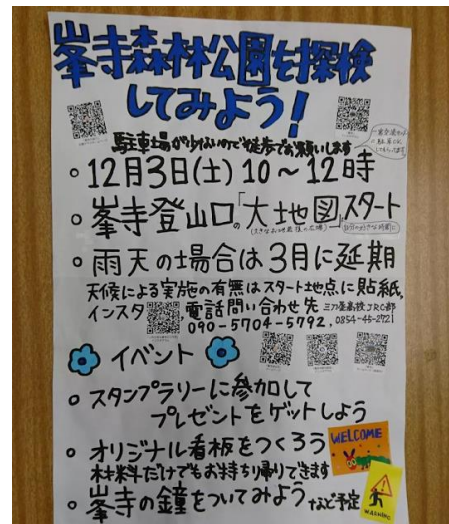 峯寺森林公園を探検
してみよう!
駐車場が少ないので徒歩でお願いします
。12月3日(土) 10～12時
。峯寺登山口の「大地図」スタート
。雨天の場合は3月に延期
天候による実施の有無はスタート地点に貼紙、
インスタ 電話問い合わせ先 三刀屋高校JRC部
090-5704-5792, 0854-45-2721
イベント
。スタンプラリーに参加して
プレゼントをゲットしよう
。オリジナル看板をつくろう
材料だけでもお持ち帰りできます
。峯寺の鐘をついてみよう など予定
WELCOME
WARNING